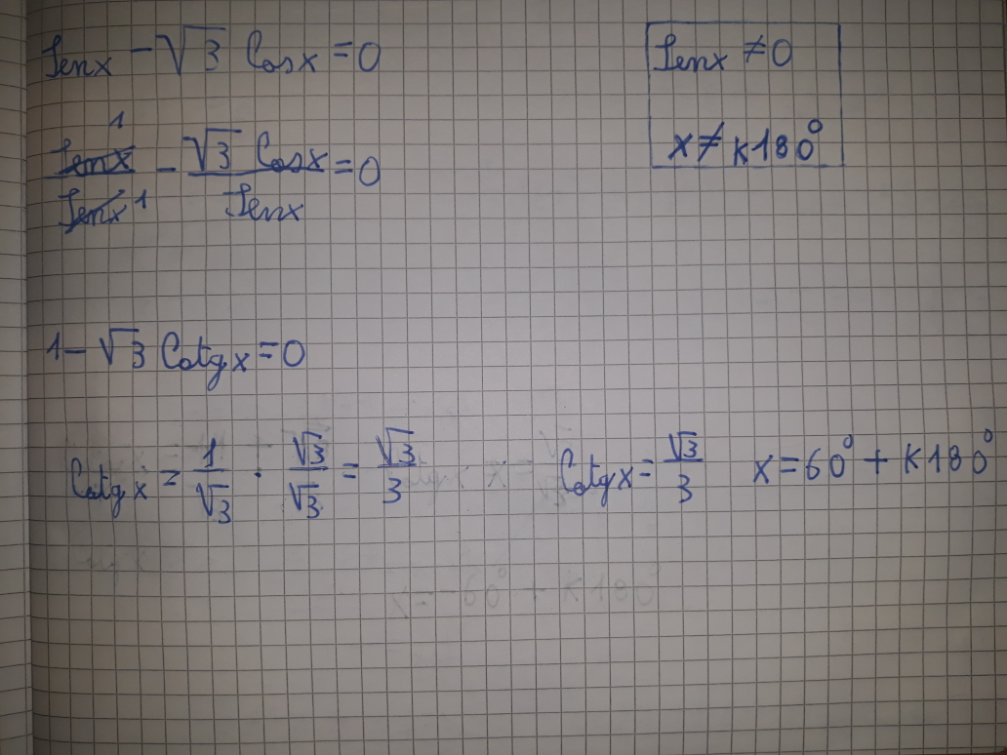 Senx - √3 Cosx = 0
Senx ≠ 0
x ≠ K180°
Senx/Senx 1 1 - √3 Cosx/Senx = 0
1 - √3 Cotgx = 0
Cotgx = 1/√3 · √3/√3 = √3/3 Cotgx = √3/3 x = 60° + K180°
x = -60° + K180°